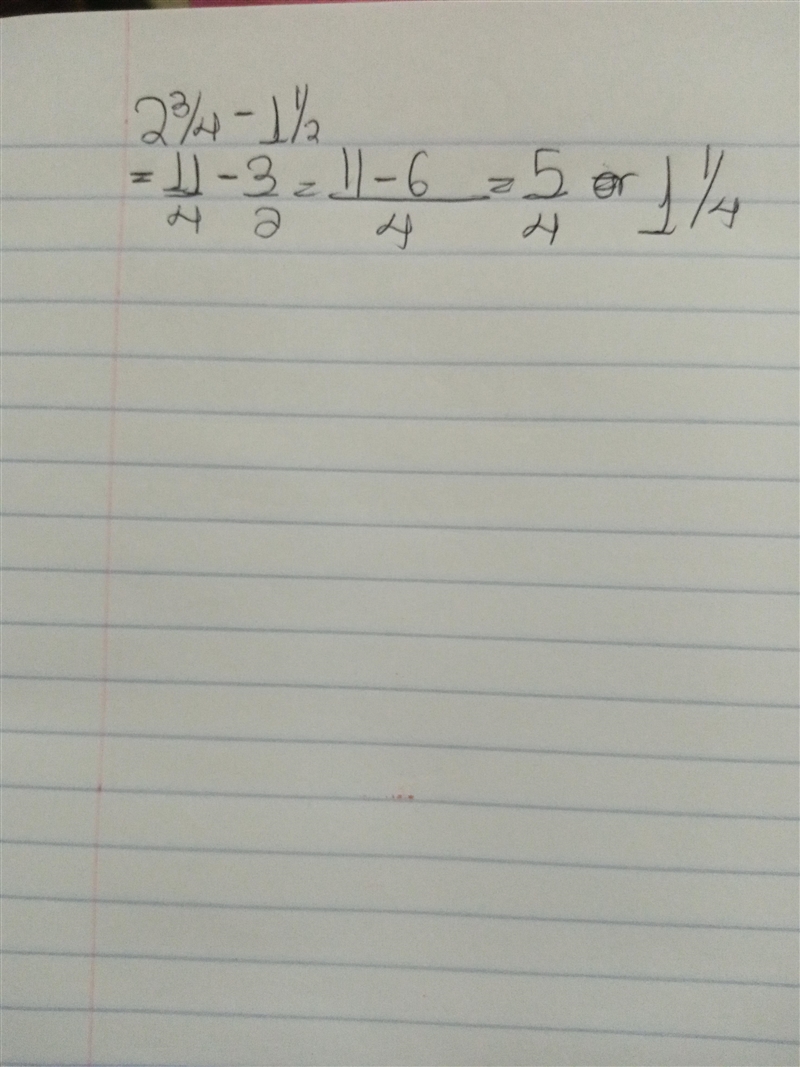 2 3/4 - 1 1/2
= 11/4 - 3/2 = 11-6/4 = 5/4 or 1 1/4